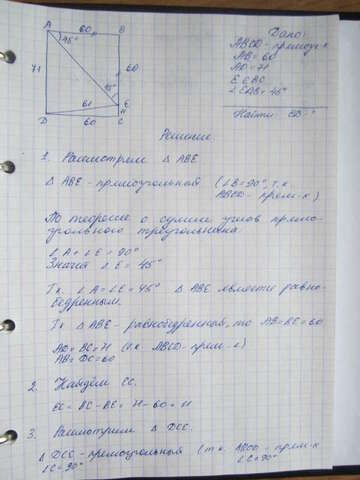 A 60 B
45°
71
60
45°
61
E
11
D 60 C
Дано:
ABCD - прямоуг-к
AB = 60
AD = 71
E ∈ BC
∠EAB = 45°
Найти: ED - ?
Решение.
1. Рассмотрим △ ABE
△ ABE - прямоугольный (∠B = 90°, т.к.
ABCD - прям-к)
По теореме о сумме углов прямо-
угольного треугольника:
∠A + ∠E = 90°
Значит ∠E = 45°
Т.к. ∠A = ∠E = 45° △ ABE является равно-
бедренным.
Т.к. △ ABE - равнобедренный, то AB = BE = 60
AD = BC = 71 (т.к. ABCD - прям-к)
AB = DC = 60
2. Найдём EC.
EC = BC - BE = 71 - 60 = 11
3. Рассмотрим △ DEC.
△ DEC - прямоугольный (т.к. ABCD - прям-к
∠C = 90° ∠C = 90°